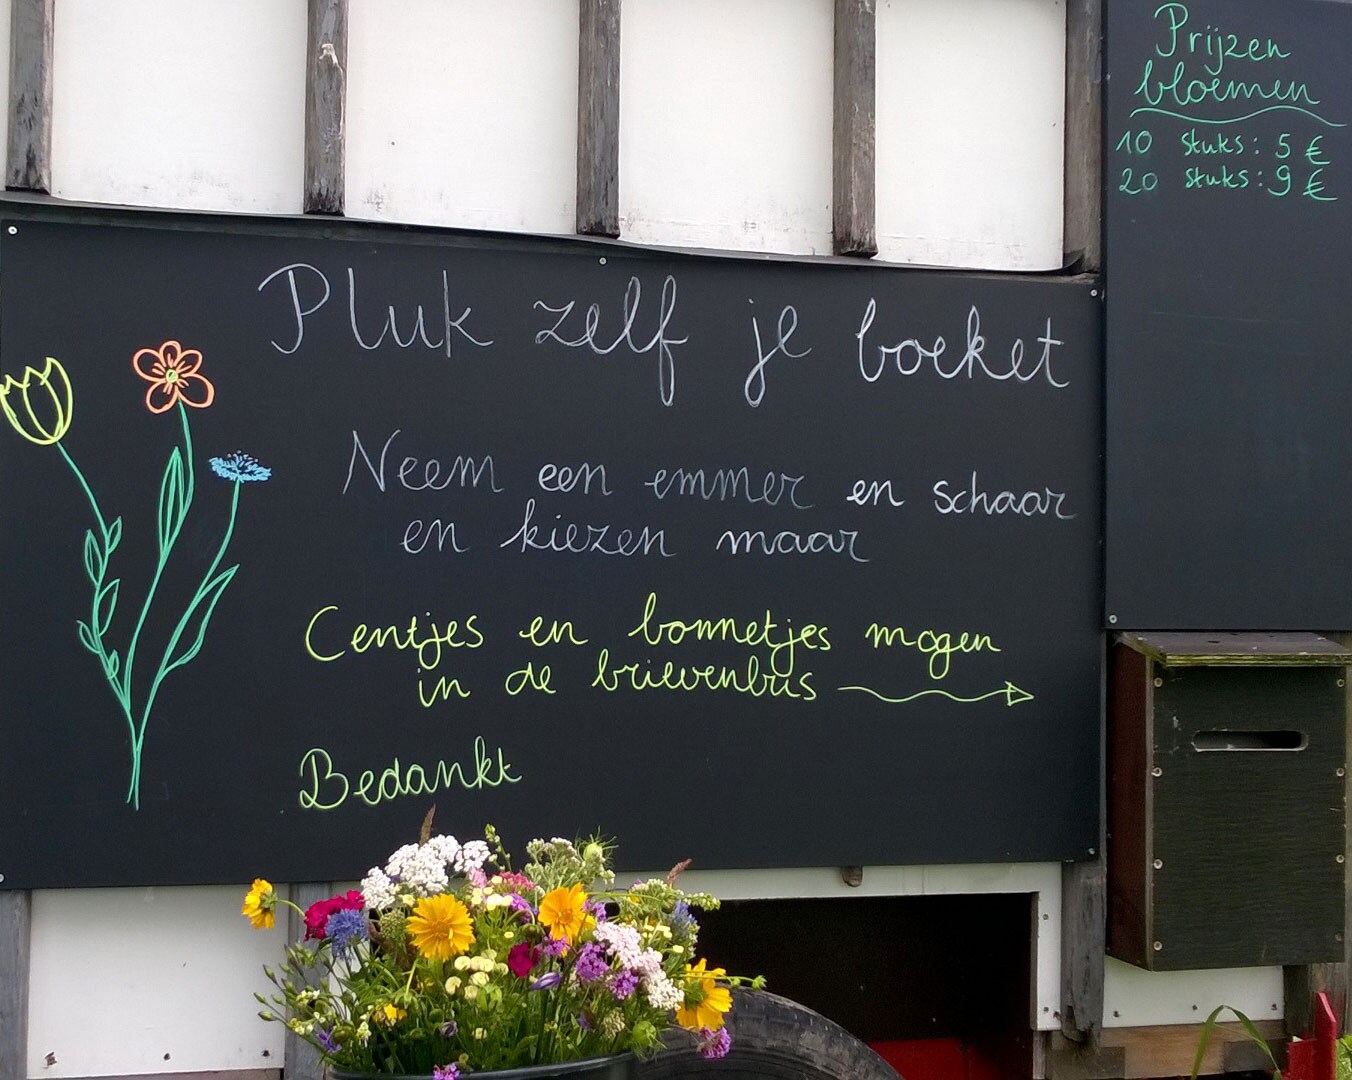 Pluk zelf je boeket
Neem een emmer en schaar
en kiezen maar
Centjes en bonnetjes mogen
in de brievenbus
Bedankt
Prijzen
bloemen
10 stuks: 5 €
20 stuks: 9 €